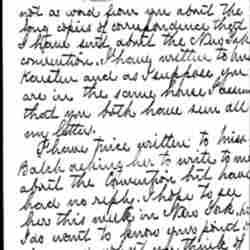 not a word from you about the
long copies of correspondence that
I have sent about the
convention. I have written to Mrs
and as I suppose you
are in the same house I assume
that you both have seen all
my letters.
I have twice written to Miss
Balch asking her to write to me
about the Convention but have
had no reply. I hope to see
her this week in New York,
I do want to know your point